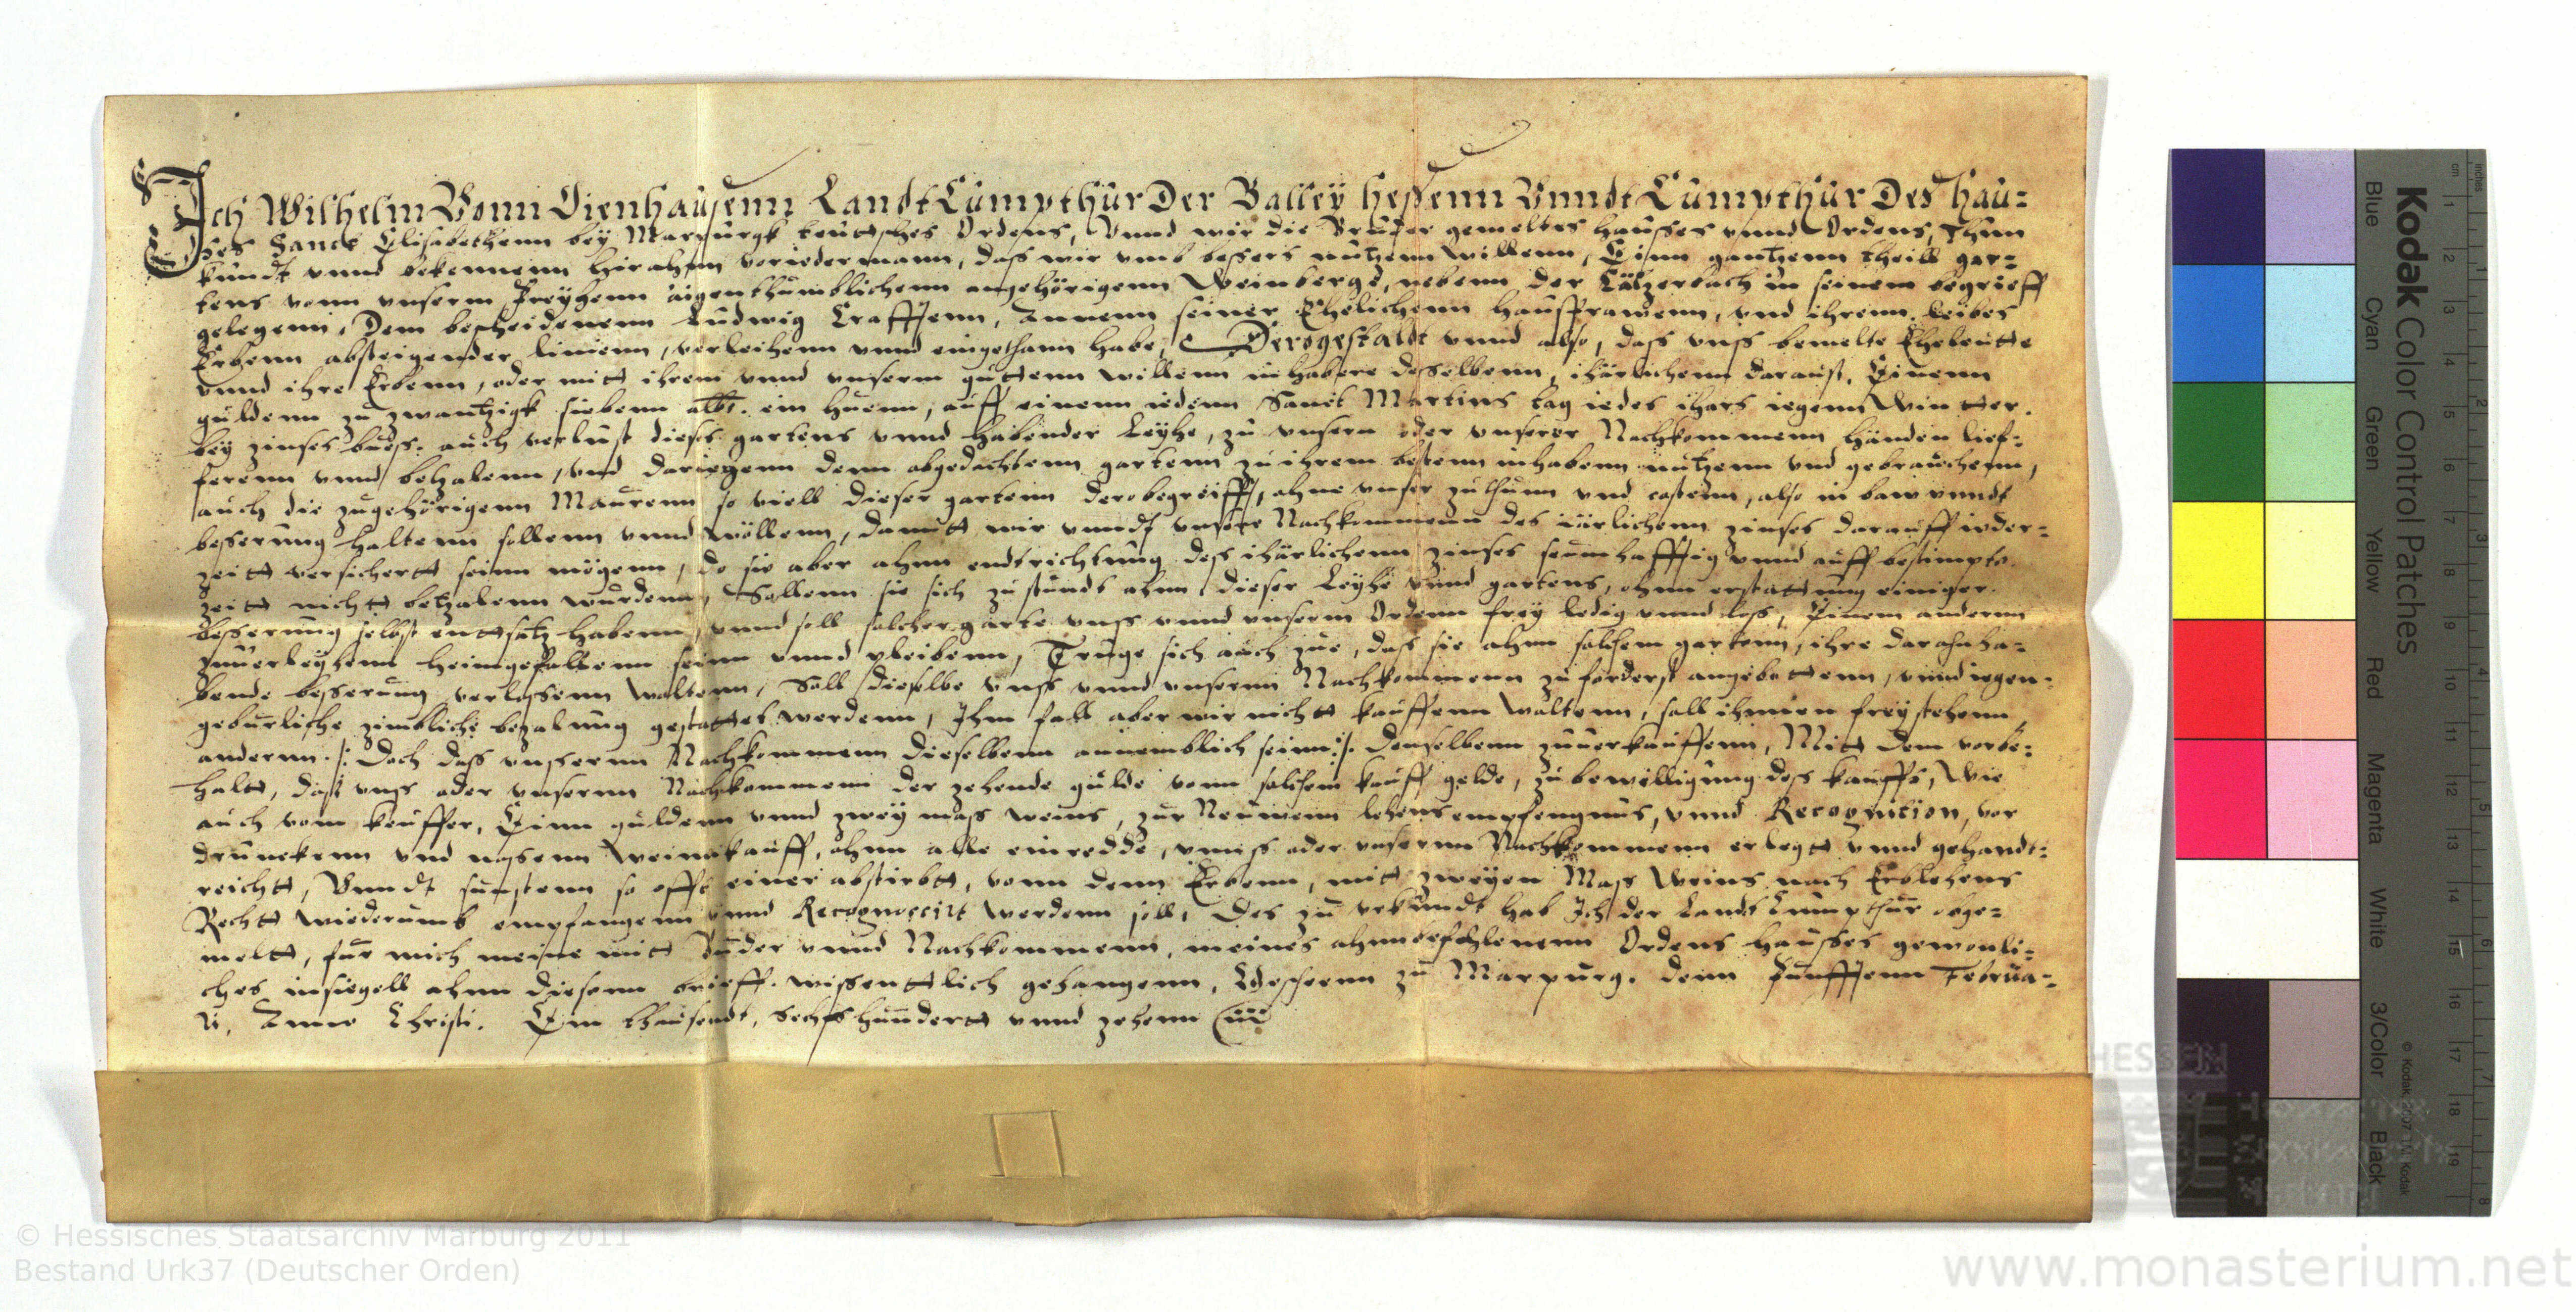 Ich Wilhelm Vonn Oienhausenn Landt Cumpthur Der Balley Hessenn Vnndt Cumpthur Des Hau=
ses Sanct Elisabethenn bey Marpurgk teutsches Ordens, Vnnd wir die Bruder gemeltes Hausses vnnd Ordens, Thun
kundt vnnd bekennenn hirahnn voriedermann, dass wir vmb bessers nutzenn willenn, Einn gantzenn theill gar=
tens vonn vnserm freyhenn aigenthumblichenn angehörigenn Weinberge, nebenn der in seinem begrieff
gelegenn, Dem bescheidenenn Ludwig Crafftenn, Annenn seiner Ehelichenn haussfrawenn, vnd ihrenn leibes
Erbenn absteigender linienn, verleihenn vnnd eingethann habe, Derogestaldt vnnd also, dass vnss bemelte Eheleutte
vnnd ihre Erbenn, oder mitt ihrem vnnd vnserm guttenn willenn inhabere desselbenn, ihärlichenn darauss, Einenn
guldenn zu zwantzigk siebenn albs. ein huenn, auff einenn iedenn Sanct Martins tag iedes ihars iegenn Wintter,
bey zinses buess, auch verlust dieses gartens vnnd habender Leyhe, zu vnsern oder vnserer Nachkommenn händen lief=
ferenn vnnd bezalenn, vnd dariegenn denn abgedachtenn gartenn zu ihrem bestenn inhabenn nutzenn vnd gebrauchenn,
auch die zugehörigenn Maurenn so viell dieser gartenn dero begreifft, ahne vnser zuthunn vnd costenn, also in baw vnndt
besserung haltenn sollenn vnnd wöllenn, damitt wir vnndt vnsere Nachkommenn des iärlichenn zinses darauff ieder=
zeitt versichertt seinn mögenn, do sie aber ahnn endtrichtung dess ihärlichenn zinses seumhafftig vnnd auff bestimpte
zeitt nichtt betzalenn wurdenn, Sollenn sie sich zu stundt ahnn dieser Leyhe vnnd gartens, ohnn erstattung einiger
besserung selbst enttsatz habenn, vnnd soll solcher garte vnss vnnd vnserm Ordenn frey ledig vnnd loss, Einem anderm
zuuerleyhenn heimgefallenn seinn vnnd pleibenn, Truge sich auch zue, dass sie ahnn solchem gartenn, ihre darahn ha=
bende besserung verlassenn woltenn, Soll dieselbe vnss vnnd vnsernn Nachkommenn zu förderst angebottenn, vnnd iegen
geburliche zimbliche bezalung gestattet werdenn, Ihm fall aber wir nichtt kauffenn woltenn, soll ihnnen frey stehenn
andernn /: Doch dass vnssernn Nachkommenn dieselbenn annemblich seinn :/ denselbenn zuuerkauffenn, Mitt dem vorbe=
haltt, dass vnss oder vnsernn Nachkommenn der zehende gulde vonn solchem kauff gelde, zu bewilligung dess kauffs, Wie
auch vom keuffer, Einn guldenn vnnd zwey mass weins, zur Neuwenn lehens empfengnus, vnnd Recognition, vor
drunckenn vnd nassenn Weinnkauff, ohnn alle einredde, vnnss oder vnsernn Nachkommenn erlegtt vnnd gehandt=
reichtt, Vnndt sunstenn so offt einer abstirbtt, vonn denn Erbenn, mitt zweyen Mass Weins nach Erblehens
Rechtt wiederumb empfangenn vnnd Recognoscirt werdenn soll, Des zu vrkundt hab Ich der Landt Cumpthur obge=
meltt, fur mich meine mitt Bruder vnnd Nachkommenn, meines ahnnbefohlenenn Ordens hausses gewonli=
ches insiegell ahnn diesenn brieff wissenttlich gehangenn, Geschenn zu Marpurg, denn Funfftenn Februa=
ij, Anno Christi. Ein thausendt, Sechss hundertt vnnd zehenn
© Hessisches Staatsarchiv Marburg 2011
Bestand Urk37 (Deutscher Orden)
www.monasterium.net
HESSEN
Kodak Color Control Patches
Blue Cyan Green Yellow Red Magenta White 3/Color Black